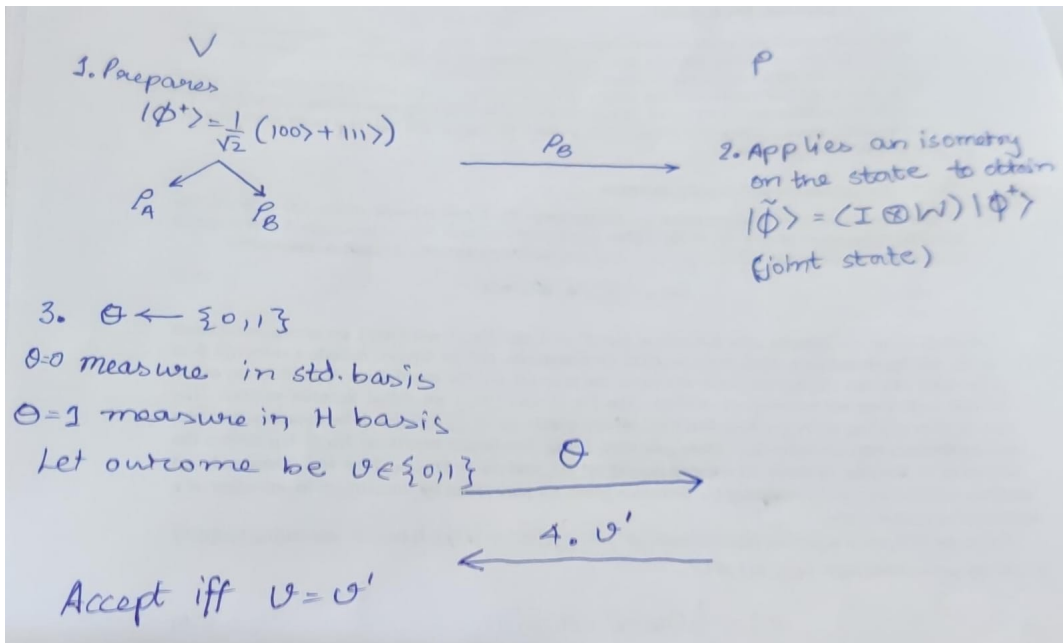 V
P
1. Prepares
|ϕ⁺> = 1/√2 (|00> + |11>)
ρ_A
ρ_B
ρ_B
2. Applies an isometry
on the state to obtain
|ϕ̃> = (I ⊗ W) |ϕ⁺>
(joint state)
3. θ ← {0,1}
θ=0 measure in std. basis
θ=1 measure in H basis
Let outcome be v∈{0,1}
θ
4. v'
Accept iff v = v'